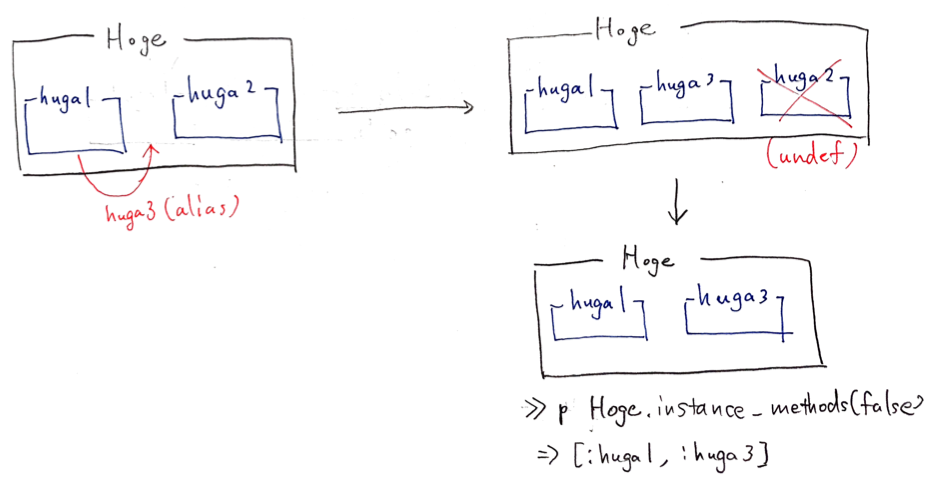 Hoge
huga1
huga2
huga3 (alias)
Hoge
huga1
huga3
huga2
(undef)
Hoge
huga1
huga3
>> p Hoge.instance_methods(false)
=> [:huga1, :huga3]